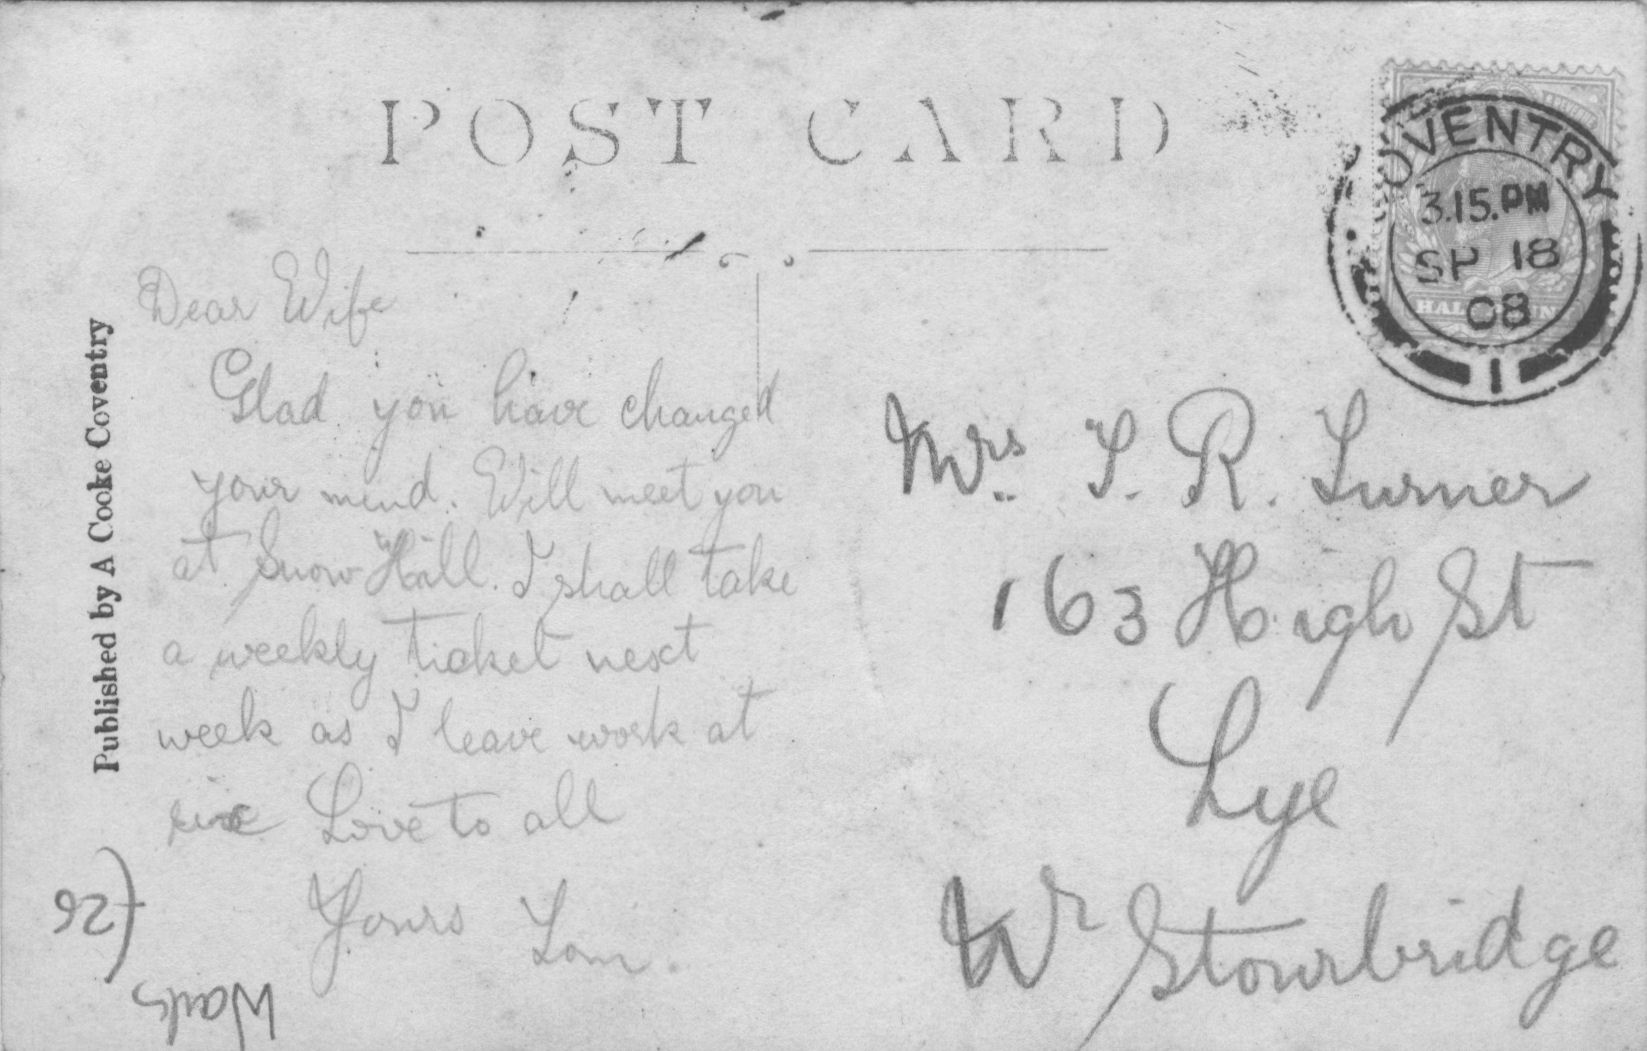 POST CARD
COVENTRY
3.15.PM
SP 18
08
1
Published by A Cooke Coventry
Dear Wife
Glad you have changed
your mind. Will meet you
at Snow Hill. I shall take
a weekly ticket next
week as I leave work at
five Love to all
Yours Tom.
Mrs. T. R. Turner
163 High St
Lye
Nr Stourbridge
(26